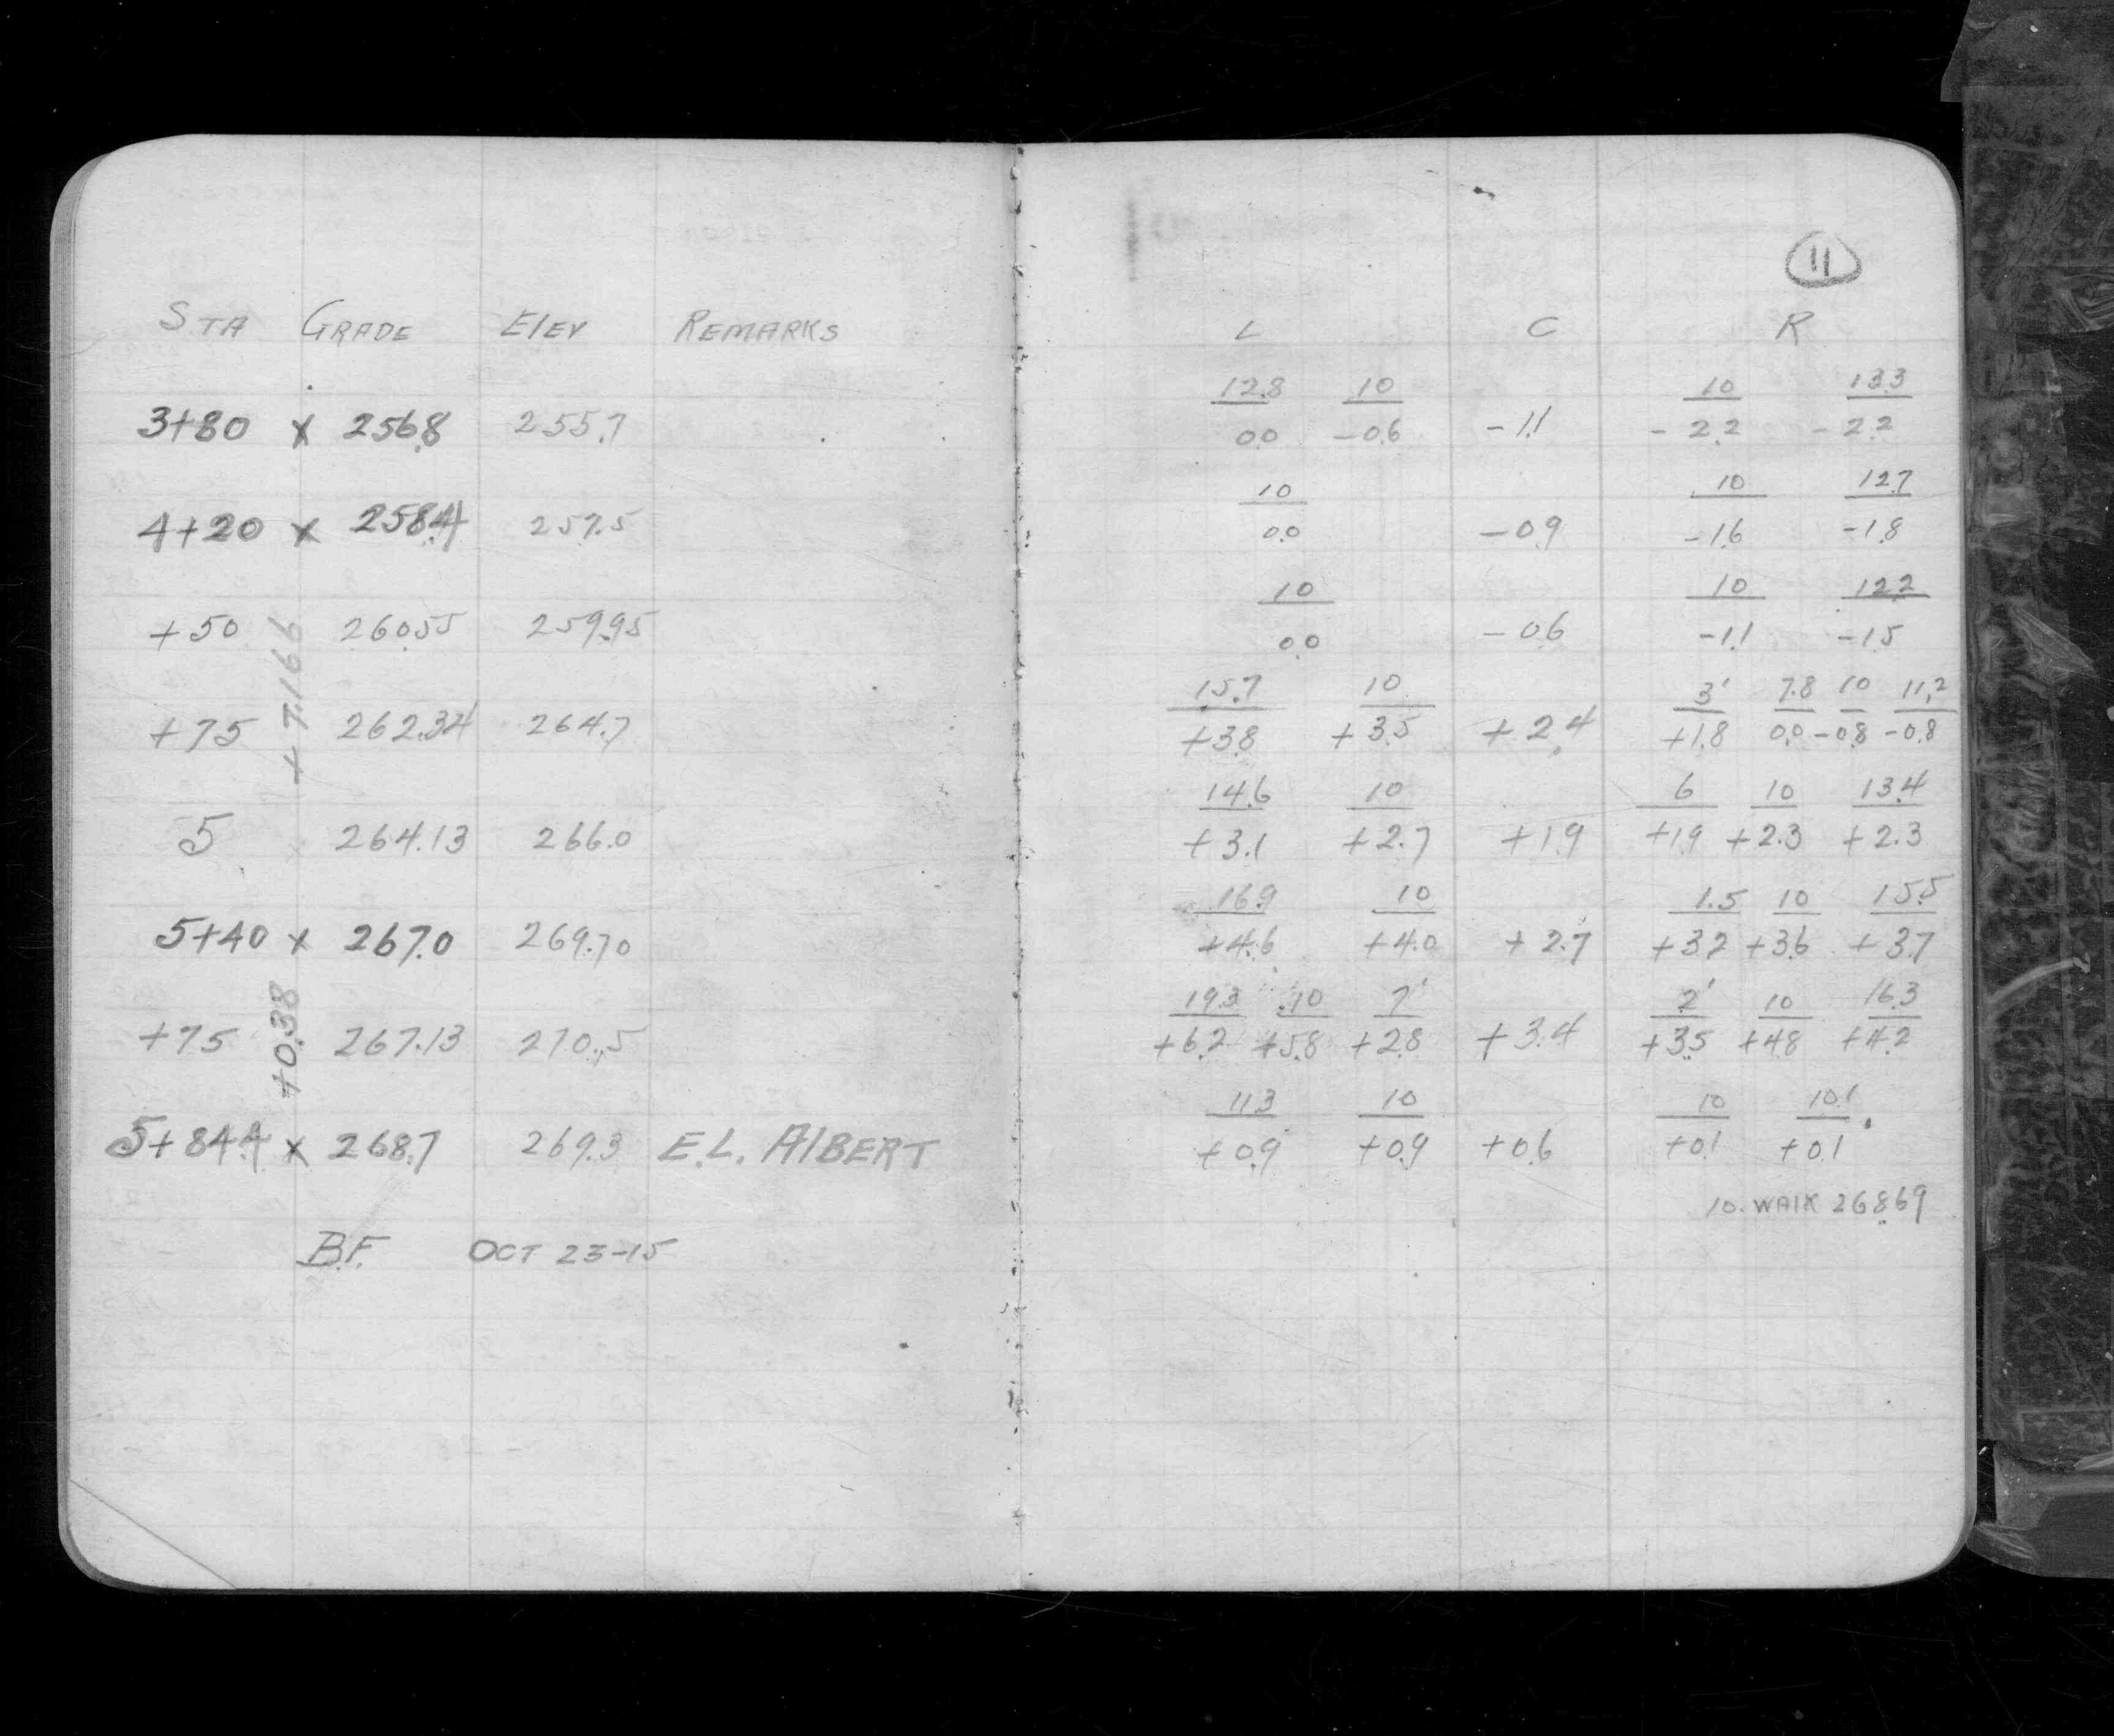 11
STA GRADE ELEV REMARKS L C R
12.8 10 10 13.3
3+80 x 256.8 255.7 0.0 -0.6 -1.1 -2.2 -2.2
10 10 12.7
4+20 x 258.4 257.5 0.0 -0.9 -1.6 -1.8
10 10 12.2
+50 260.55 259.95 0.0 -0.6 -1.1 -1.5
+7.166
15.7 10 3' 7.8 10 11.2
+75 262.34 264.7 +3.8 +3.5 +2.4 +1.8 0.0 -0.8 -0.8
14.6 10 6 10 13.4
5 264.13 266.0 +3.1 +2.7 +1.9 +1.9 +2.3 +2.3
16.9 10 1.5 10 15.5
5+40 x 267.0 269.70 +4.6 +4.0 +2.7 +3.2 +3.6 +3.7
+0.38
19.3 10 7' 2' 10 16.3
+75 267.13 270.5 +6.2 +5.8 +2.8 +3.4 +3.5 +4.8 +4.2
11.3 10 10 10.1
5+84.4 x 268.7 269.3 E.L. ALBERT +0.9 +0.9 +0.6 +0.1 +0.1
10. WALK 268.69
B.F. OCT 23-15